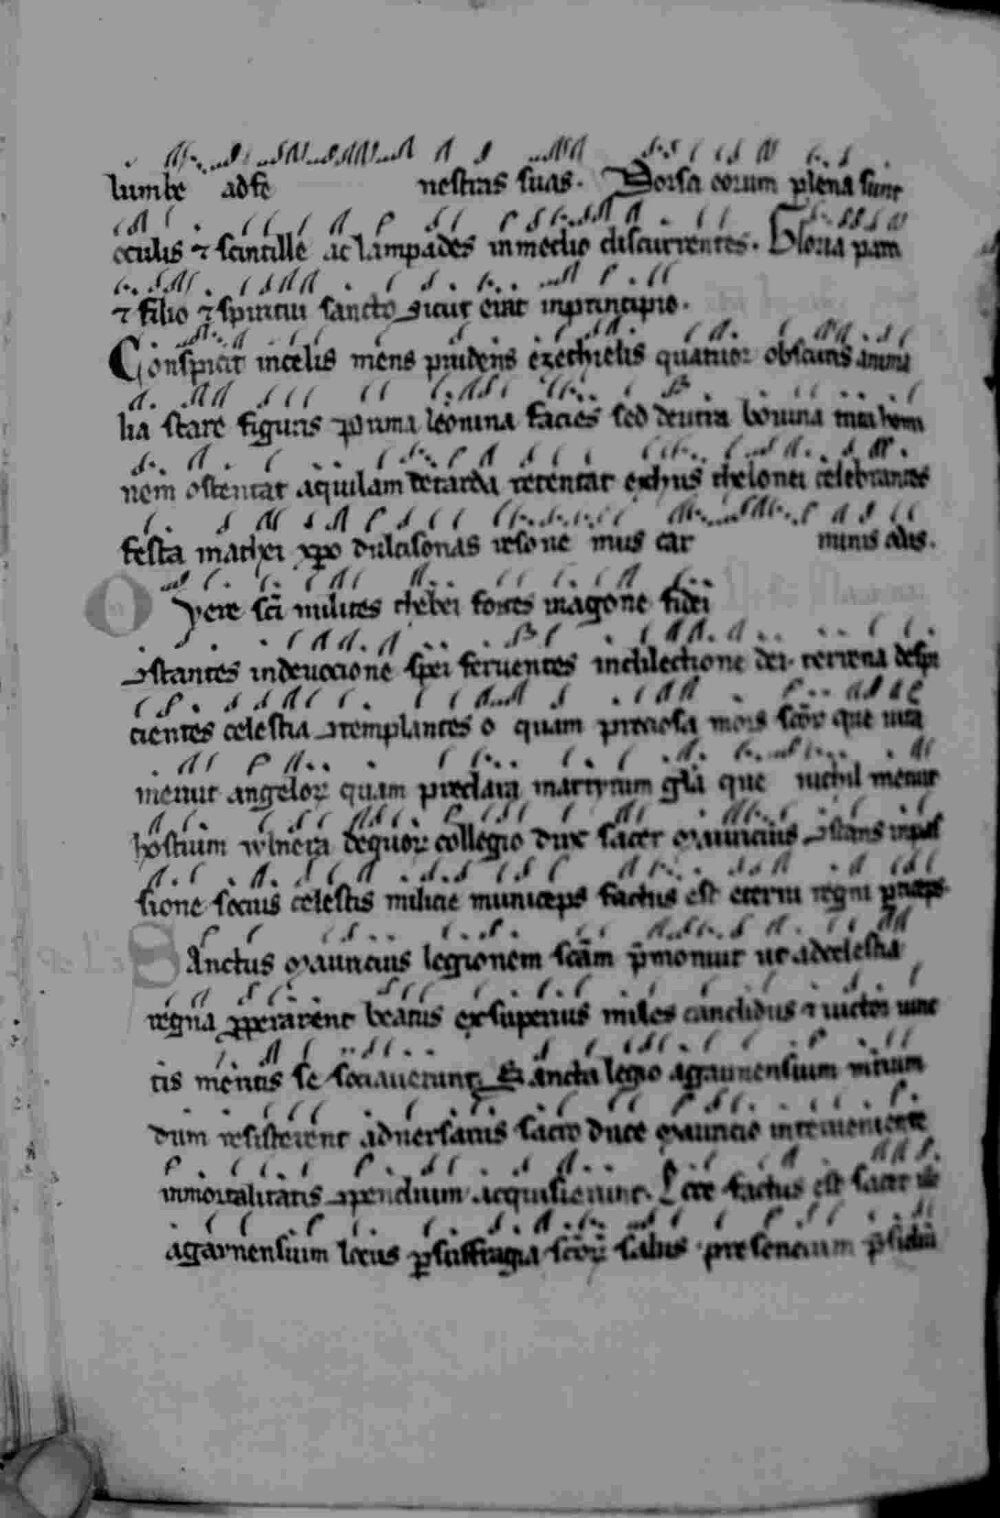 lumbe ad fe nestras suas. Dorsa eorum plena sunt
oculis ⁊ scintille ac lampades in medio discurrentes. Gloria patri
⁊ filio ⁊ spiritui sancto sicut erat in principio.
Conspicat in celis mens prudens ezechielis quatuor obscuris anima
lia stare figuris prima leonina facies sed dextra bouina
nem ostentat aquilam retentat thelonei celebrantes
festa mathei xpo dulcisonas resone mus car minis odas.
O vere sci milites thebei fortes in agone fidei
ꝯstantes in deuocione spei feruentes in dilectione dei. terrena despi
cientes celestia ꝯtemplantes o quam preciosa mors scoꝝ que uita
metiuit angeloꝝ quam preclara martyrum gla que nichil metuit
hostium wlnera de quoꝝ collegio dux sacer mauricius ꝯstans in pas
sione socius celestis milicie municeps factus est eterni regni
Sanctus mauricius legionem scam pmonuit ut ad celestia
regna ꝓperarent beatus exsuperius miles candidus ⁊ uictor uinc
tis mentis se sociauerunt. Sancta legio agaunensium
dum resisterent aduersariis sacro duce mauricio interueniente
inmortalitatis ꝯpendium acquisierunt. Ecce factus est sacer ille
agaunensium locus ꝑ suffragia scoꝝ salus presencium psidium